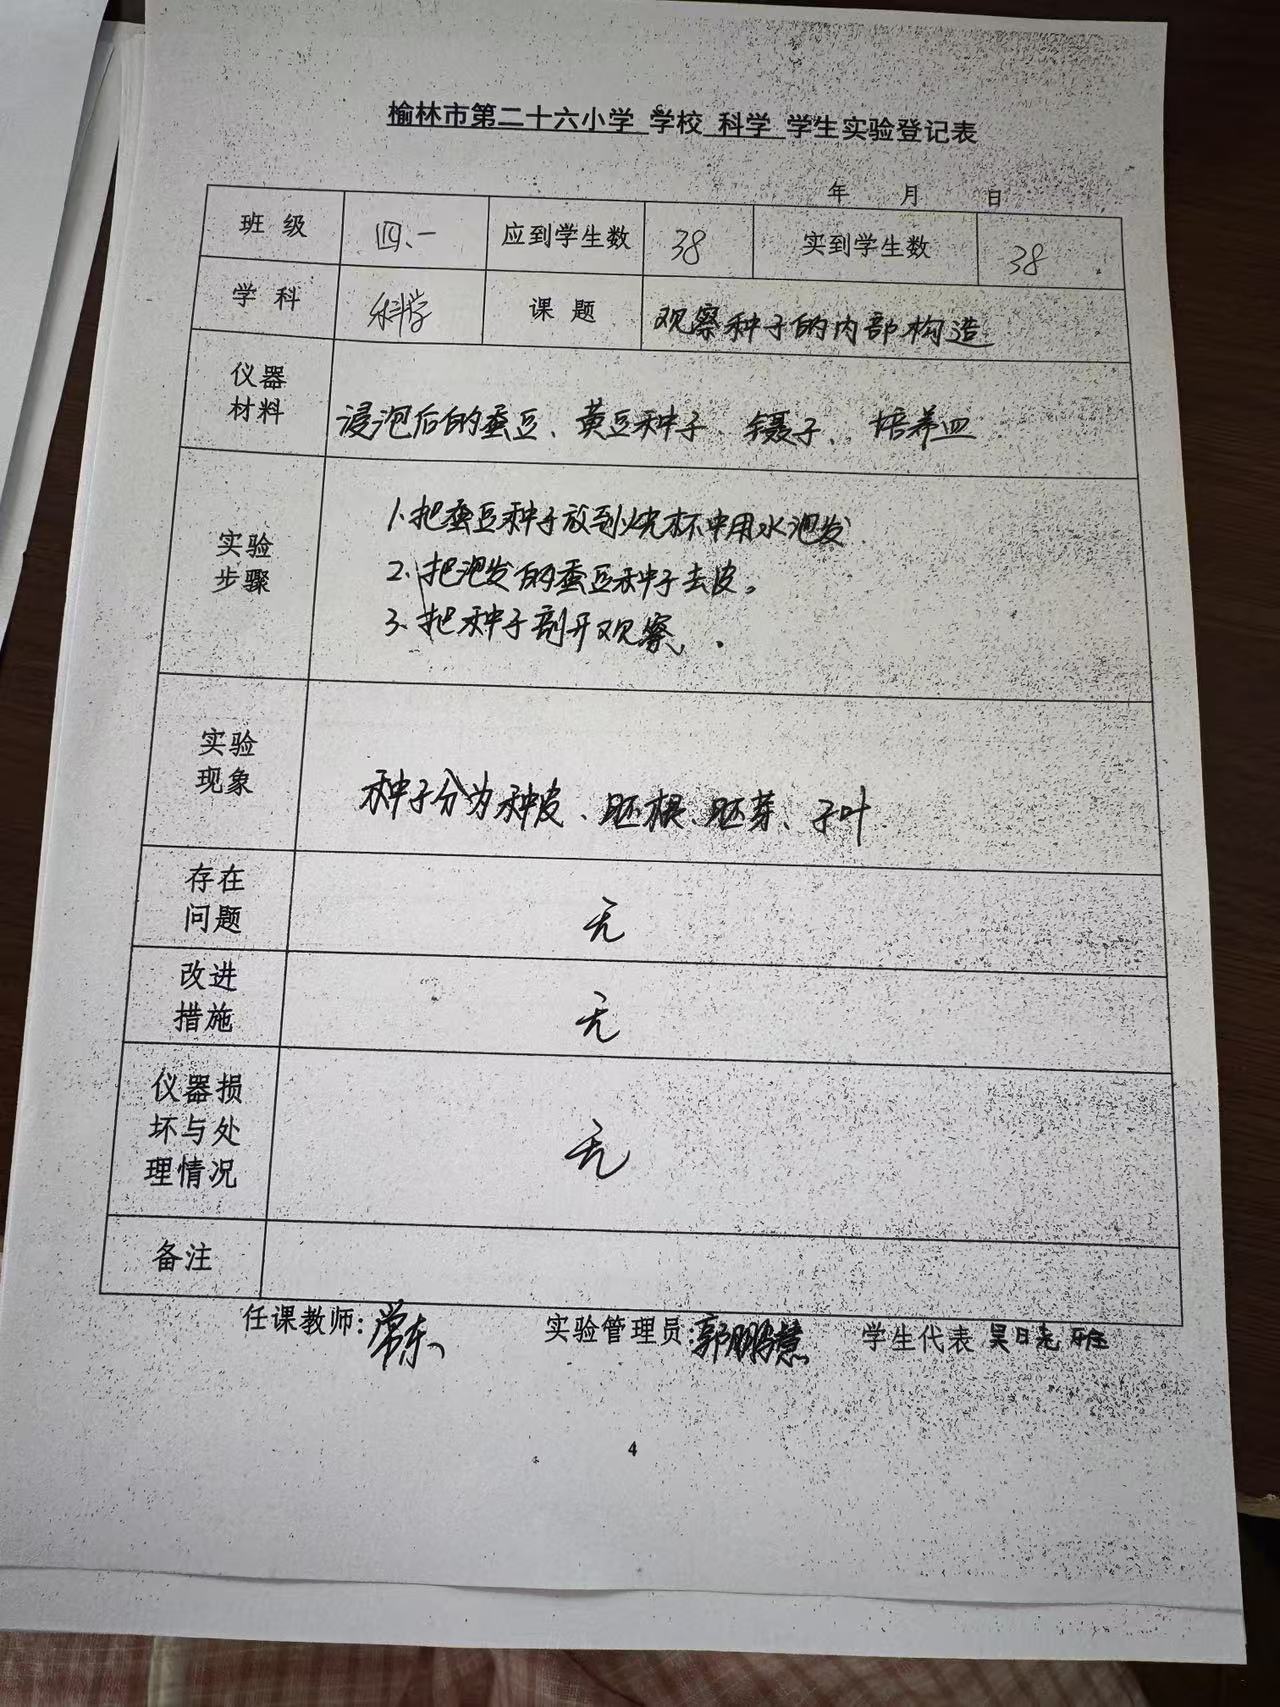 榆林市第二十六小学 学校 科学 学生实验登记表
年 月 日
班 级 四、一 应到学生数 38 实到学生数 38
学 科 科学 课 题 观察种子的内部构造
仪器
材料
浸泡后的蚕豆、黄豆种子 镊子、培养皿
实验
步骤
1.把蚕豆种子放到烧杯中用水泡发
2.把泡发的蚕豆种子去皮。
3.把种子剖开观察.
实验
现象
种子分为种皮、胚根、胚芽、子叶
存在
问题
无
改进
措施
无
仪器损
坏与处
理情况
无
备注
任课教师:常东 实验管理员:郭鹏慧 学生代表
4